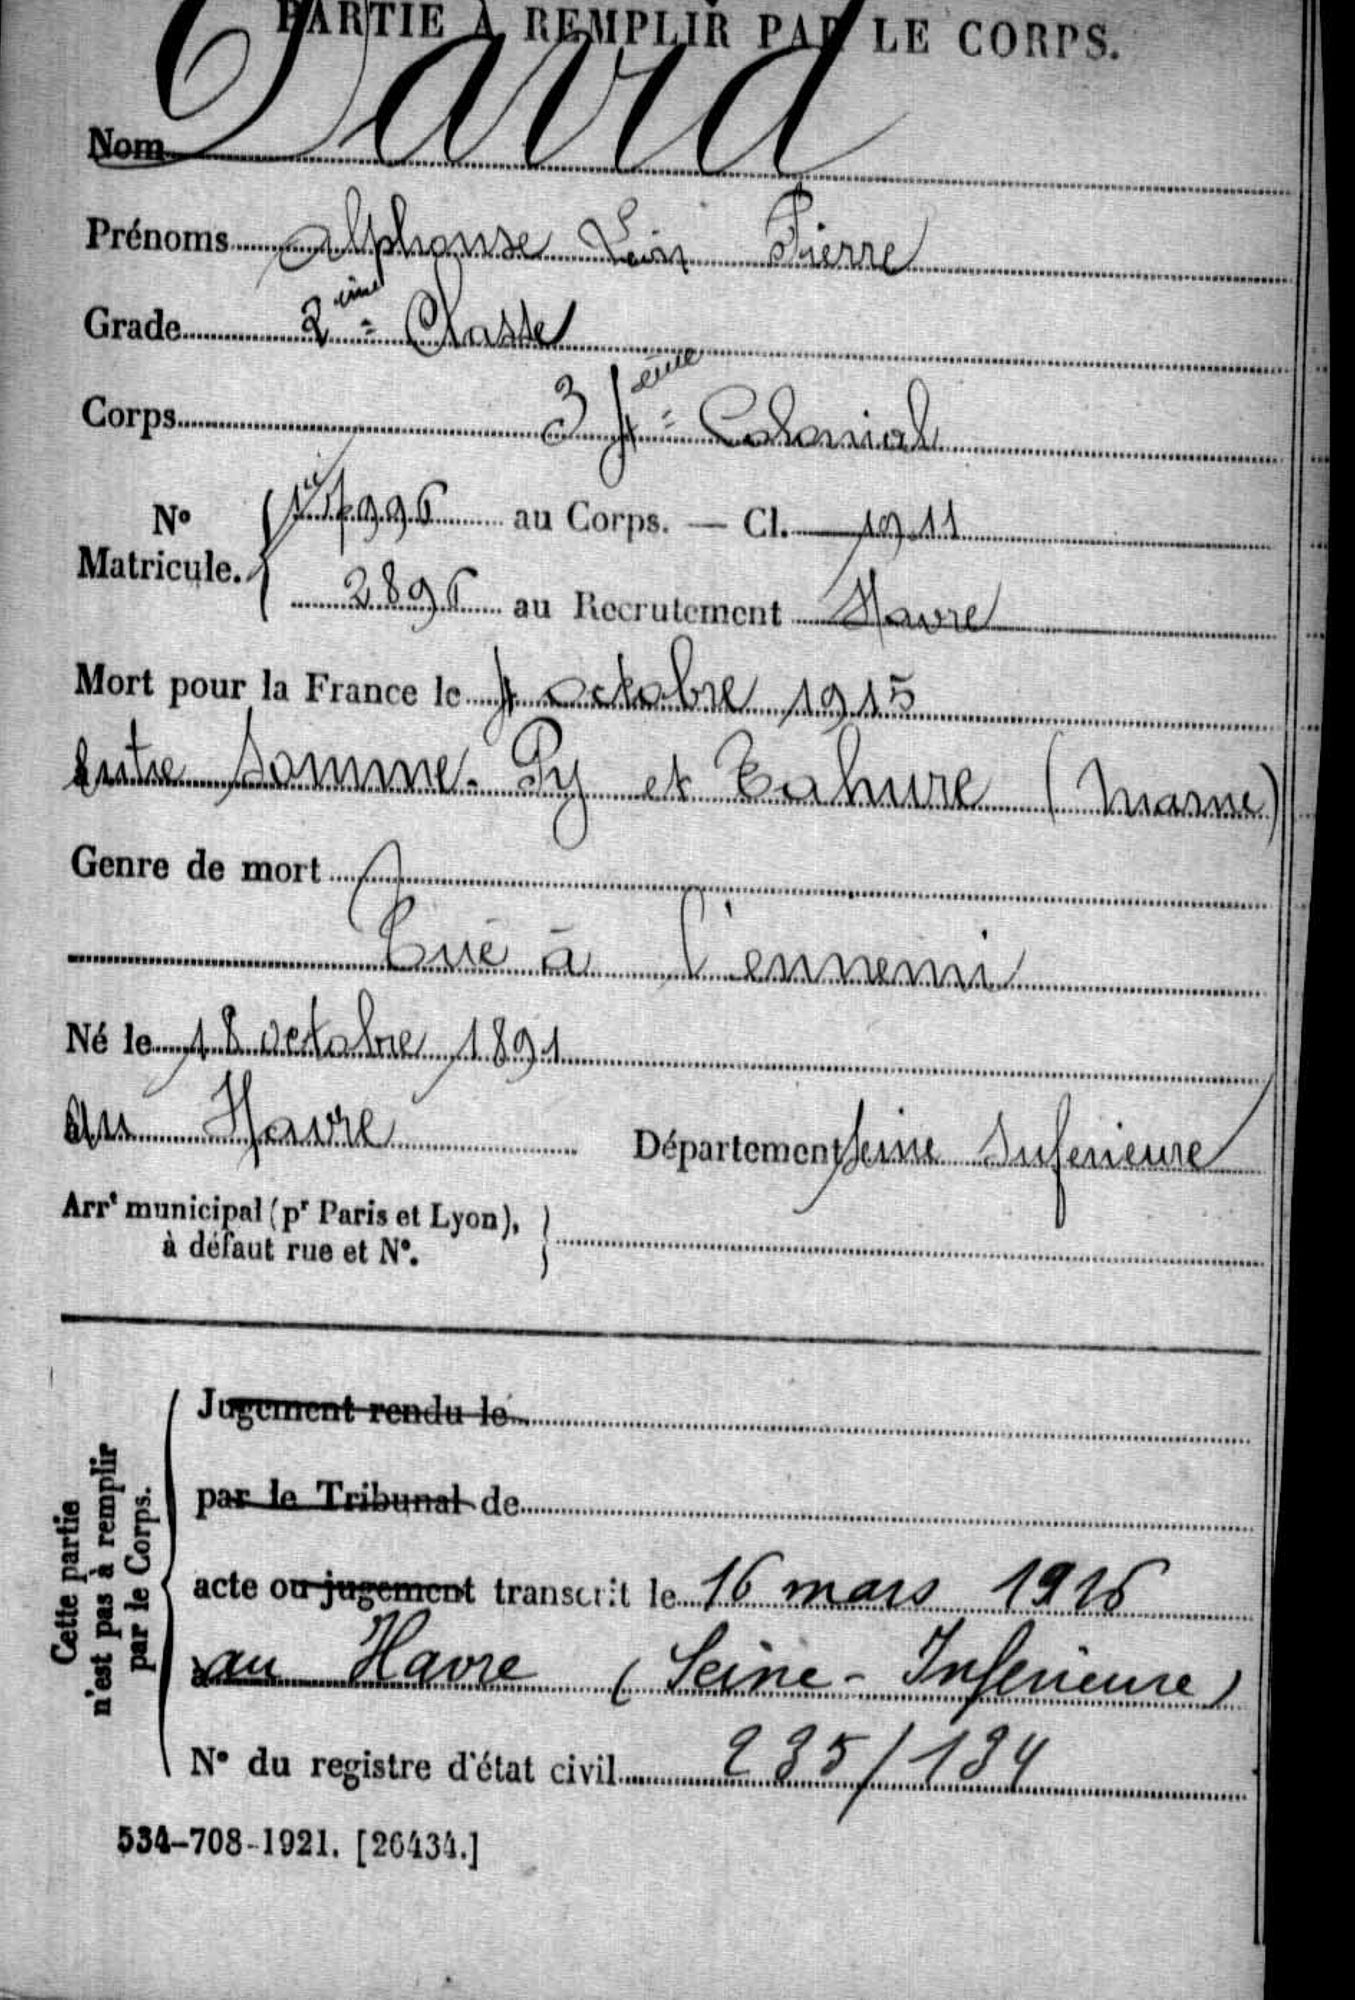 PARTIE À REMPLIR PAR LE CORPS.
Nom David
Prénoms Alphonse Léon Pierre
Grade 2ème Classe
Corps 34ème Colonial
N° Matricule. 996 au Corps. — Cl. 1911
2896 au Recrutement Havre
Mort pour la France le 4 octobre 1915
Entre Somme-Py et Tahure (Marne)
Genre de mort
Tué à l'ennemi
Né le 18 octobre 1891
au Havre Département Seine Inferieure
Arrt municipal (pr Paris et Lyon),
à défaut rue et N°.
Cette partie
n'est pas à remplir
par le Corps.
Jugement rendu le
par le Tribunal de
acte ou jugement transcrit le 16 mars 1916
au Havre (Seine-Inferieure)
N° du registre d'état civil 235/134
534-708-1921. [26434.]